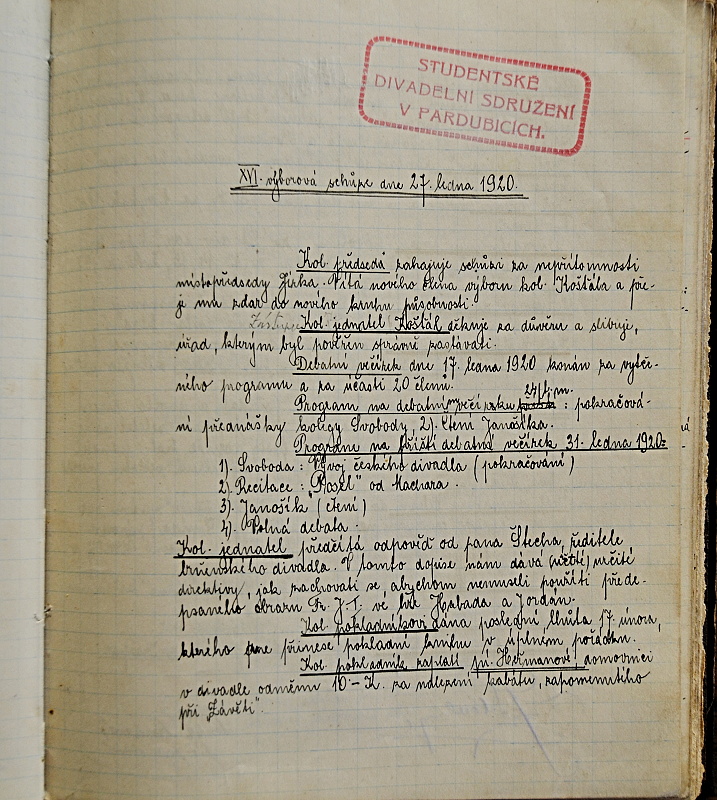 STUDENTSKÉ
DIVADELNÍ SDRUŽENÍ
V PARDUBICÍCH.
XVI. výborová schůze dne 27. ledna 1920.
Kol. předseda zahajuje schůzi za nepřítomnosti
místopředsedy Jirka. Vítá nového člena výboru kol. Košťála a pře-
je mu zdar do nového kruhu působnosti.
Kol. jednatel Košťál děkuje za důvěru a slibuje,
úřad, kterým byl pověřen správně zastávati.
Debatní večírek dne 17. ledna 1920 konán za vytče-
ného programu a za účasti 20 členů.
Program na debatní večírek 24/I. m. : pokračová-
ní přednášky kolegy Svobody, 2). Čtení Janošíka.
Program na příští debatní večírek 31. ledna 1920:
1). Svoboda : Vývoj českého divadla (pokračování)
2). Recitace : „Posel" od Machara.
3). Janošík (čtení)
4). Volná debata.
Kol. jednatel předčítá odpověď od pana Štecha, ředitele
brněnského divadla. V tomto dopise nám dává určité
direktivy, jak zachovati se abychom nemuseli použíti přede-
psaného obrazu Fr. J. I. ve hře Habada a Jordán.
Kol. pokladníkovi dána poslední lhůta 17. února,
kterého přinese pokladní knihu v úplném pořádku.
Kol. pokladník zaplatí pí. Heřmanové, domovnici
v divadle odměnu 10.- K. za nalezení kabátu, zapomenutého
při „Závěti".